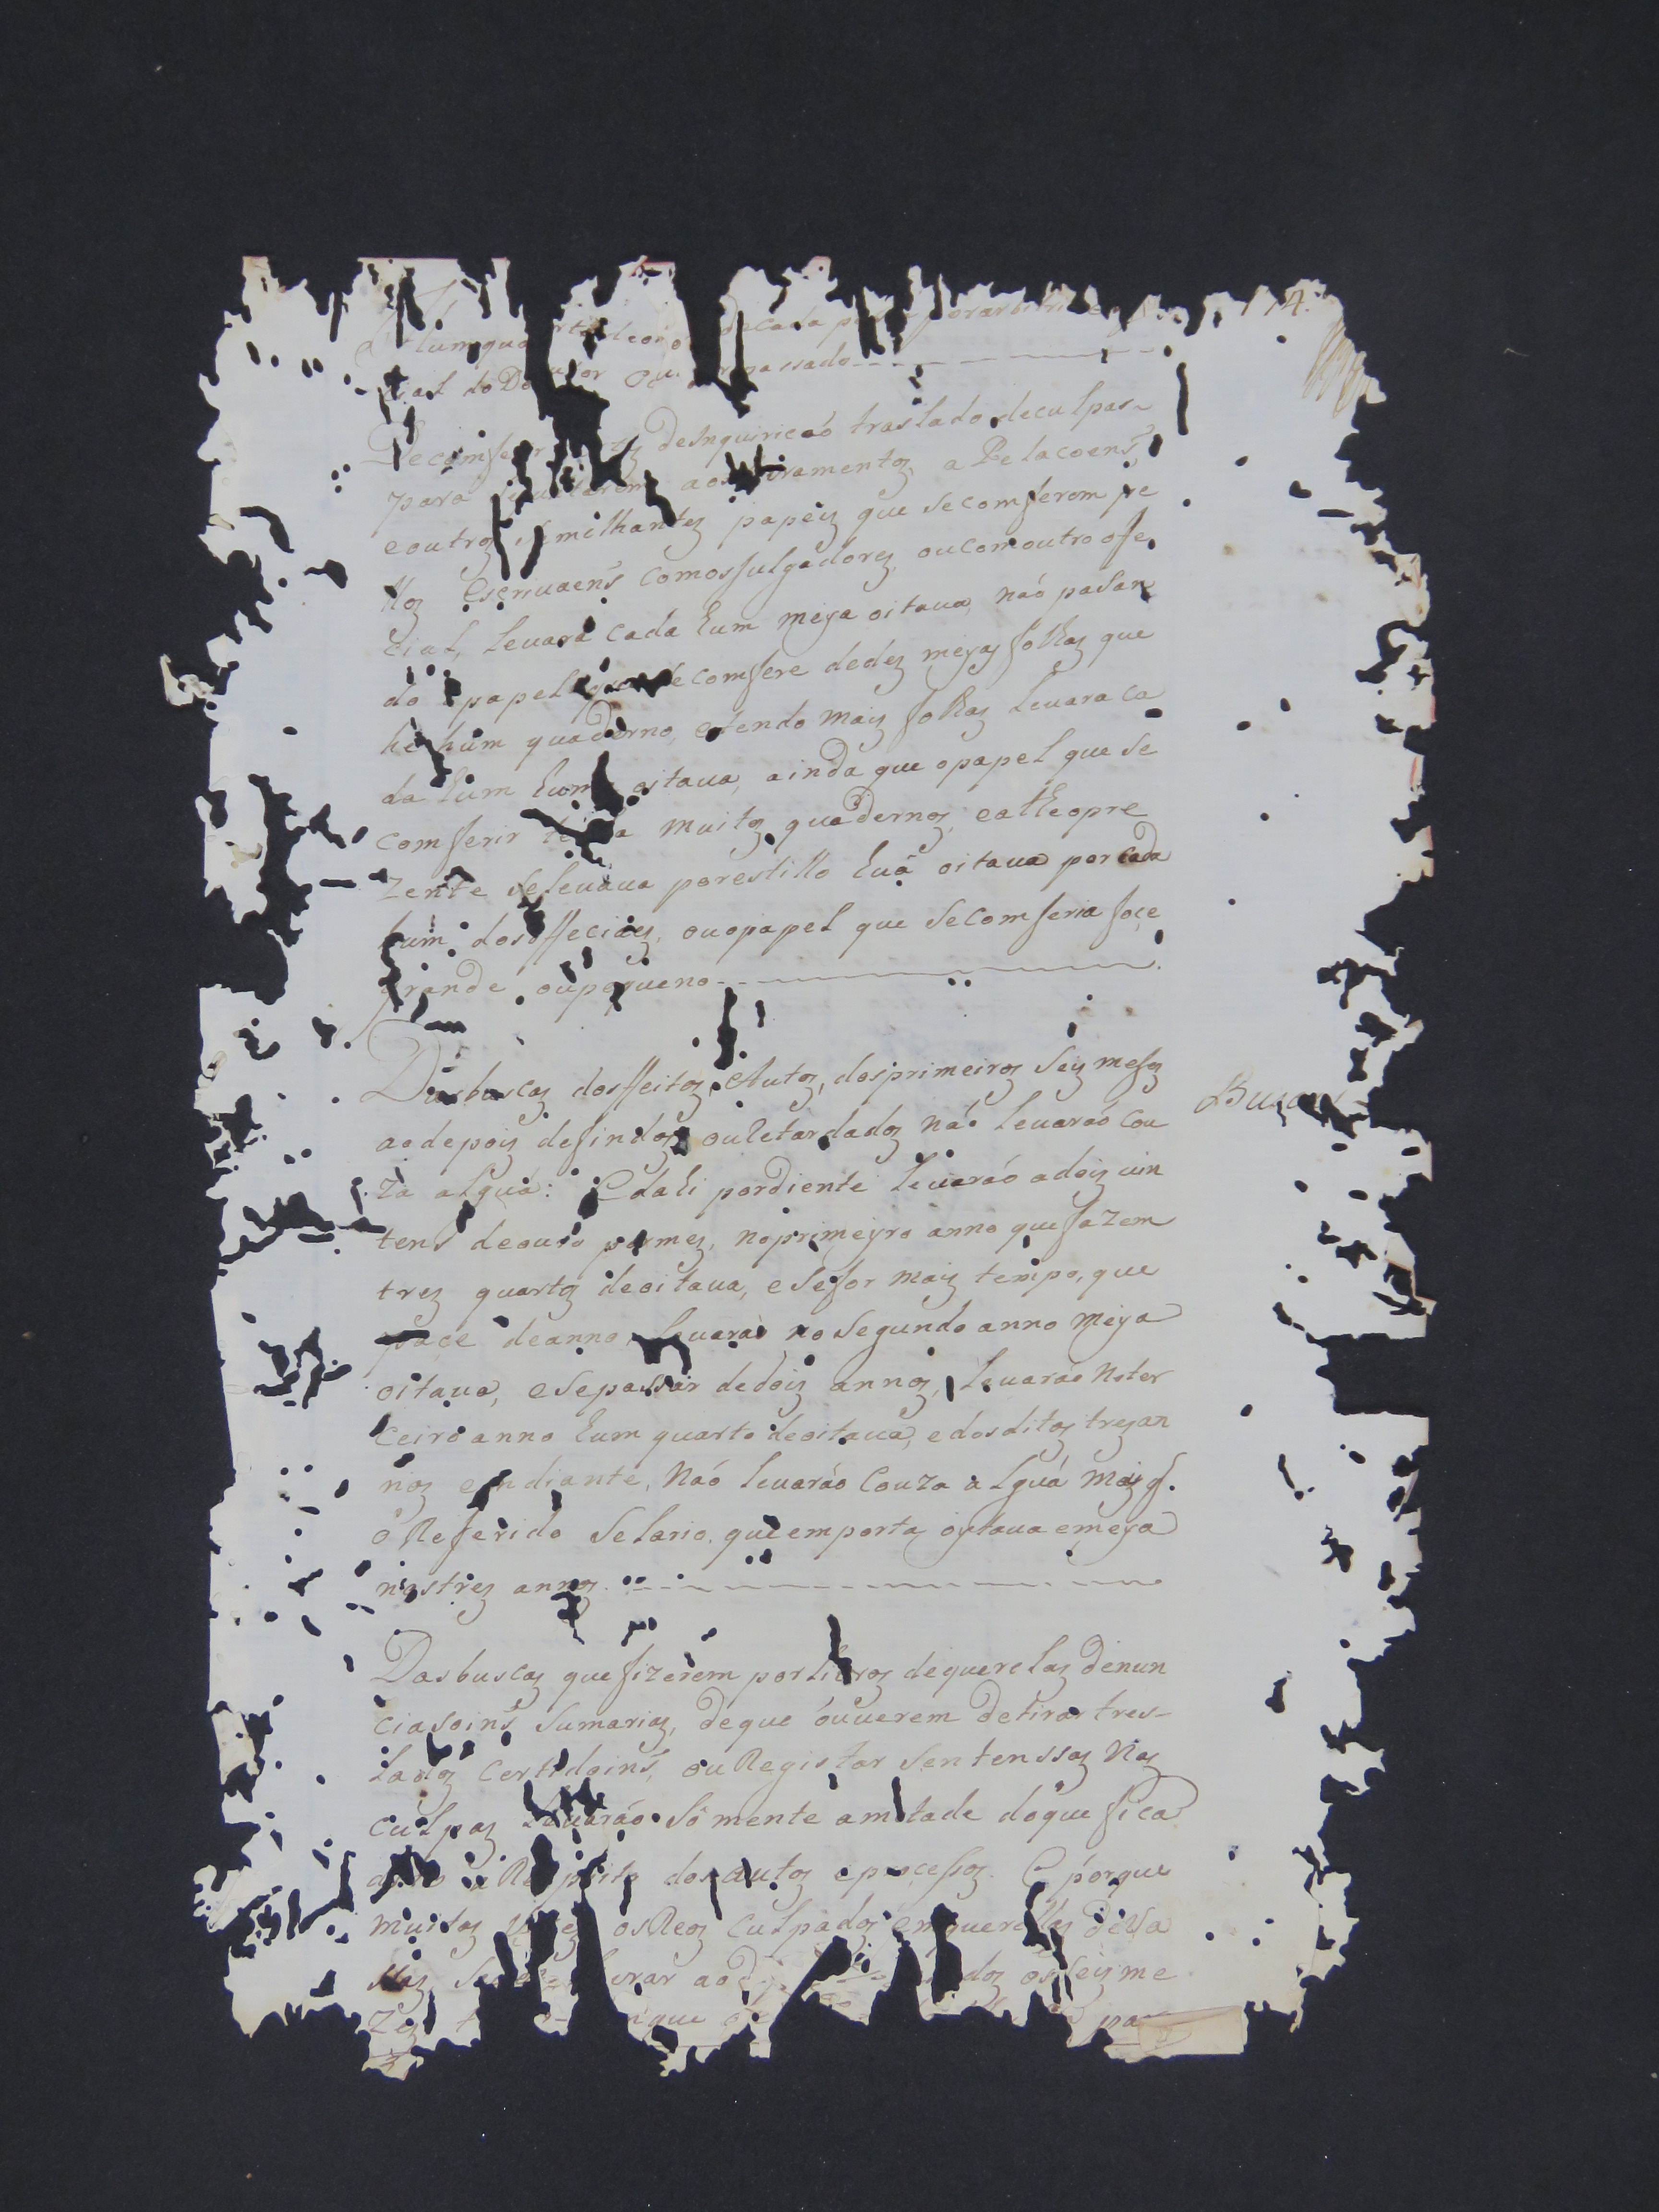 174.
decada
do passado
Seconferir deInquiricaõ traslado deculpas
para aos Livramentos, a Relacoens,
eoutros Similhantes papeis que Secomferem pe
llos Escrivaens comosJulgadores, oucomoutro ofe
cial, Levará cada hum meya oitava, naõ pasan
do opapel que Secomfere dedez meyas folhas que
he hum quaderno, etendo mais folhas Levara ca
da hum huma oitava, ainda que opapel que Se
comferir tenha muitos quadernos, eatheopre
zente Selevava porestillo huã oitava por cada
hum dosoffeciaes, ouopapel que Secomferia foçe
grande oupequeno
Dasbuscas dosffeitos, eAutos, dosprimeiros Seis mezes
aodepois defindos, ouRetardados naõ Levaraõ cou
za alguã: Edahi pordiente Levaraõ adois vin
tens deouro pormes, noprimeyro anno quefazem
tres quartos deoitava, eSefor mais tempo, que
paçe deanno, Levaraõ no Segundo anno meya
oitava, eSepassar dedois annos, Levaraõ noter
ceiro anno hum quarto deoitava, edosditos tresan
nos endiante, Naõ levaraõ Couza alguã mais q.
o Referido Selario, queemporta oytava emeya
nostres annos.
Buscas
Dasbuscas quefizerem porLivros dequerelas denun
ciasoins Sumarias, deque ouverem detirar tres-
Lados Certidoins, ouRegistar Sentenssas Nas
culpas Levaraõ Sômente ametade doque fica
a Respeito dosautos eprocessos. Eporque
muitas vezes osReos culpados emquerellas deVa
ssas Livrar ao dos osSeis me
zes que pa